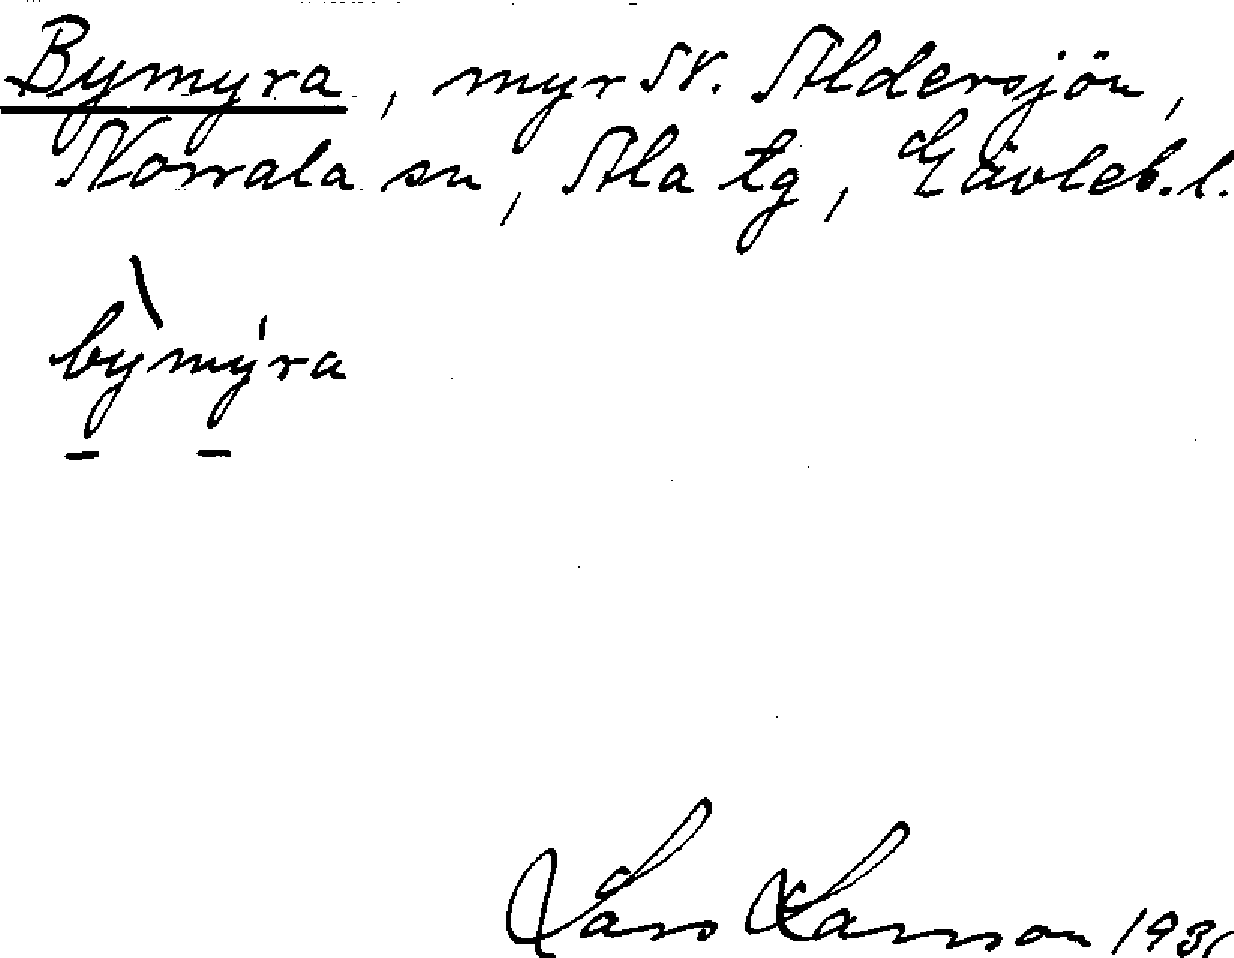 Bymyra, myr N. Aldersjön,
Norrala sn, Ala tg, Gävleb.l.
bỳmýra
Lars Larsson 1931